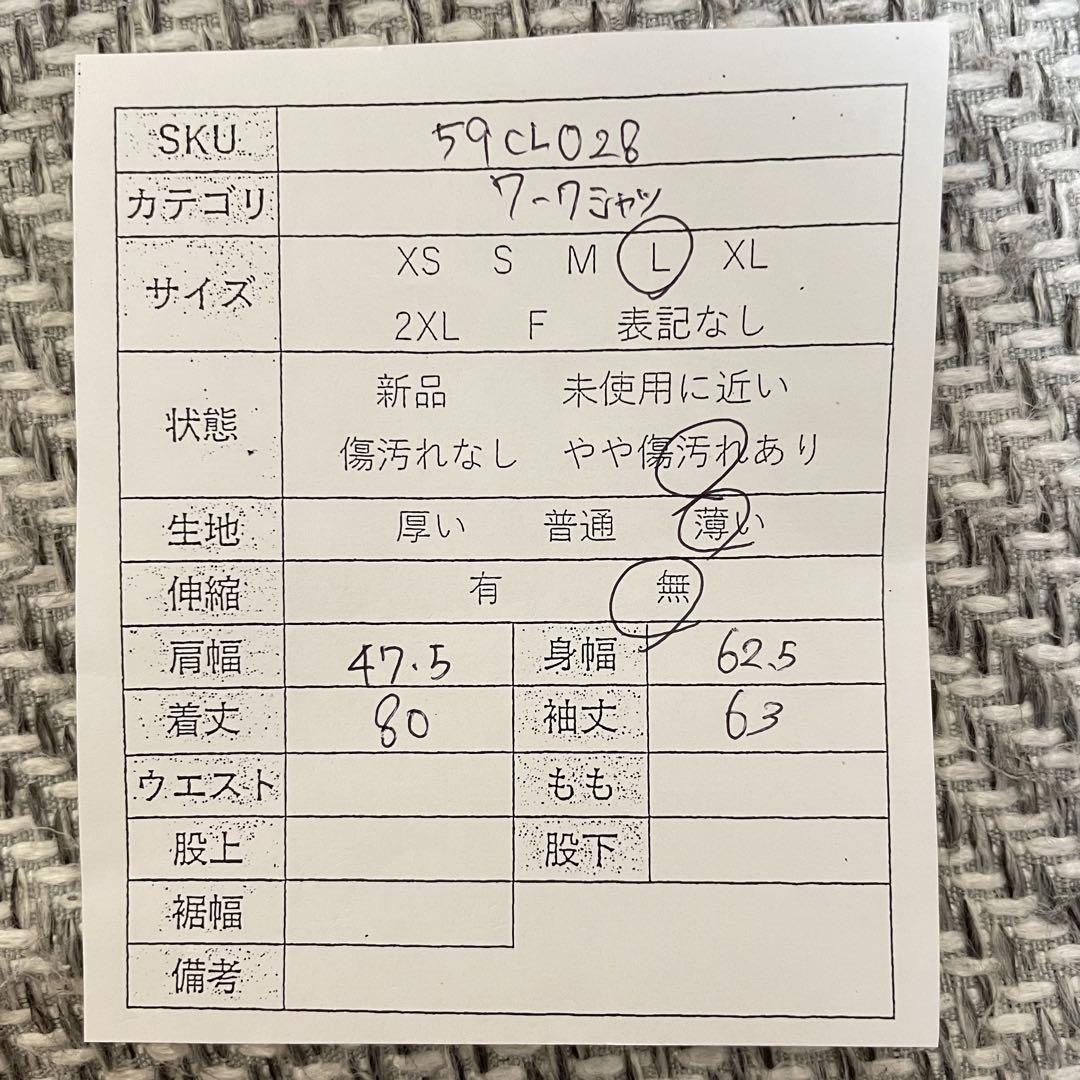 SKU 59CL028
カテゴリ ワークシャツ
サイズ XS S M L XL
2XL F 表記なし
状態 新品 未使用に近い
傷汚れなし やや傷汚れあり
生地 厚い 普通 薄い
伸縮 有 無
肩幅 47.5 身幅 62.5
着丈 80 袖丈 63
ウエスト もも
股上 股下
裾幅
備考